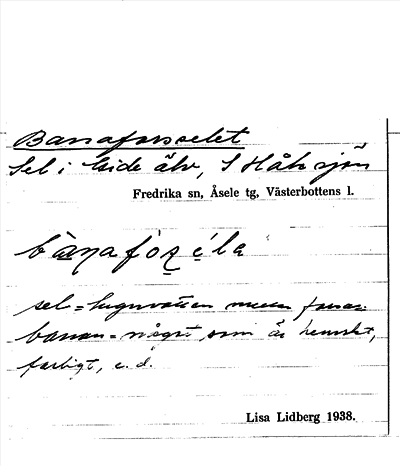 Banaforsselet
Sel i Gide älv, S Håksjön
Fredrika sn, Åsele tg, Västerbottens l.
bànafòsé̜la
sel = lugnvatten mellan forsar.
banan = något som är hemskt,
farligt, e. d.
Lisa Lidberg 1938.